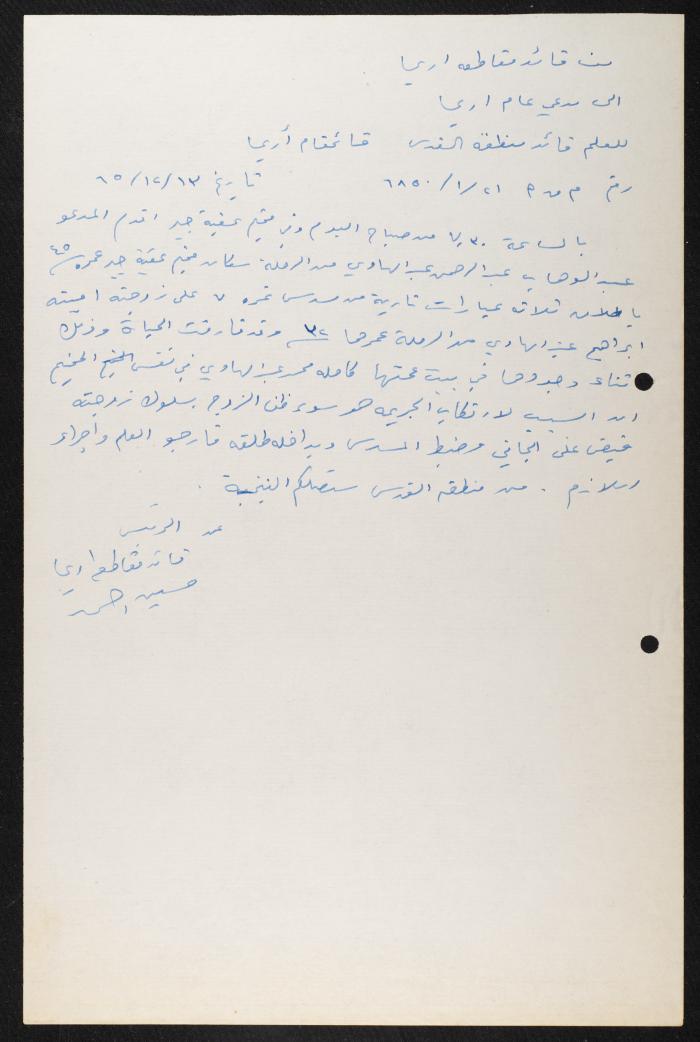 من قائد مقاطعه اريحا
الى مدعي عام اريحا
للعلم قائد منطقة القدس قائمقام أريحا
رقم م ق م ٢١/١/٦٨٥٠ تاريخ ٦٥/١٢/١٣
بالساعة ٧٫٣٠ من صباح اليوم وفي مخيم عقبة جبر اقدم المدعو
عبد الوهاب عبد الرحمن عبد الهادي من الرملة سكان مخيم عقبة جبر عمره ٤٥
باطلاق ثلاثه عيارات نارية من مسدس نمره ٧ على زوجته امينه
ابراهيم عبد الهادي من الرملة عمرها ٣٢ وقد فارقت الحياة وذلك
اثناء وجودها في بيت عمتها كامله محمد عبد الهادي في نفس المخيم
ان السبب لارتكاب الجريمه هو سوء ظن الزوج بسلوك زوجته
قبض على الجاني وضبط المسدس وبداخله طلقه فارجو العلم واجراء
اللازم . من منطقه القدس ستصلكم النتيجة .
عن الرئيس
قائد مقاطعة اريحا
حسين احمد